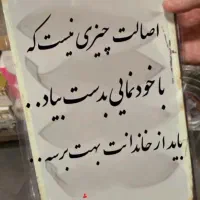 اصالت چیزی نیست که
با خودنمایی بدست بیاد..
باید از خاندانت بهت برسه..